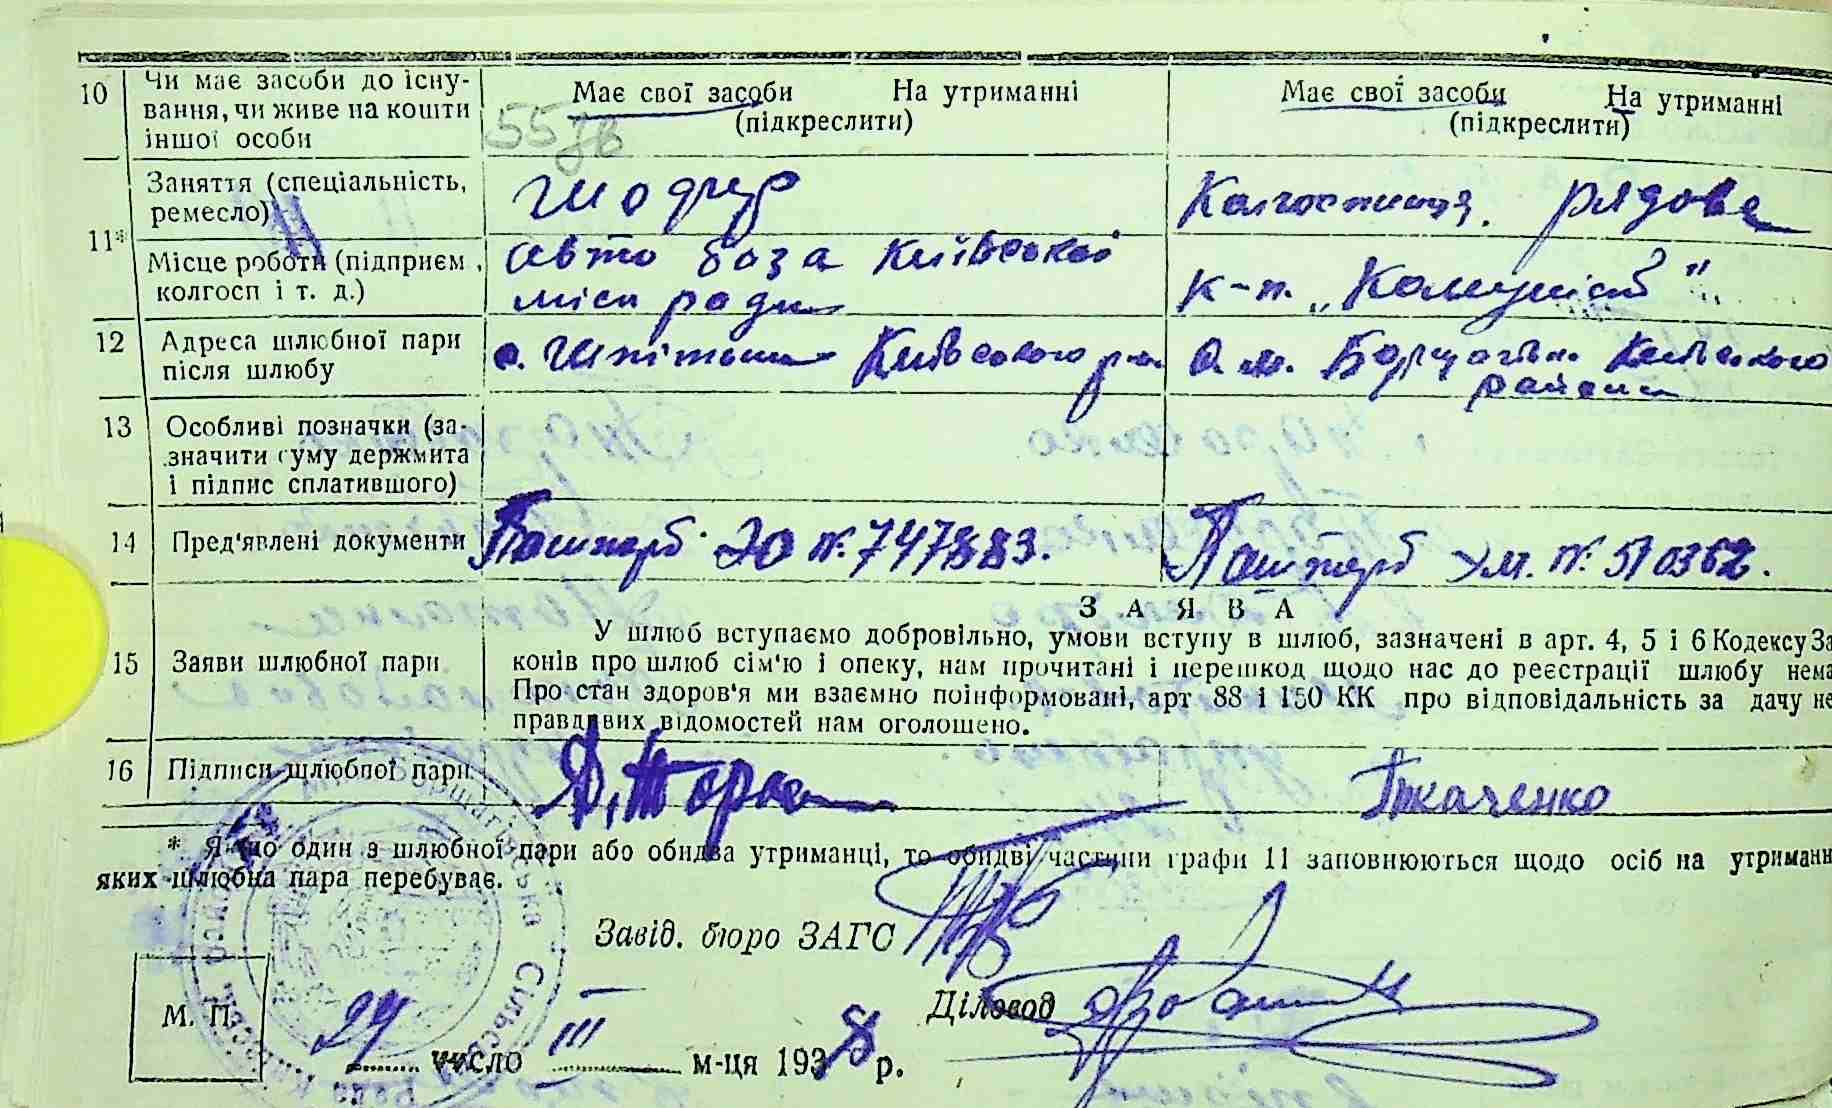 10 Чи має засоби до існу-
вання, чи живе на кошти
іншої особи
Має свої засоби На утриманні
(підкреслити)
Має свої засоби На утриманні
(підкреслити)
55
11* Заняття (спеціальність,
ремесло)
Шофер
Колгоспниця. рядова
Місце роботи (підприєм.,
колгосп і т. д.)
Авто база Київської
міськ ради
к-п. „Комуніст"
12 Адреса шлюбної пари
після шлюбу
с. Шпітьки Київського р-н
с. м. Борщагівка Київського
району
13 Особливі позначки (за-
значити суму держмита
і підпис сплатившого)
14 Пред'явлені документи
Пашпорт. ЭО №. 747883.
Пашпорт УМ. №. 510362.
ЗАЯВА
15 Заяви шлюбної пари
У шлюб вступаємо добровільно, умови вступу в шлюб, зазначені в арт. 4, 5 і 6 Кодексу За
конів про шлюб сім'ю і опеку, нам прочитані і перешкод щодо нас до реєстрації шлюбу нема
Про стан здоров'я ми взаємно поінформовані, арт 88 і 150 КК про відповідальність за дачу не
правдивих відомостей нам оголошено.
16 Підписи шлюбної пари
Ткаченко
* Якщо один з шлюбної пари або обидва утриманці, то обидві частини графи 11 заповнюються щодо осіб на утриманн
яких шлюбна пара перебуває.
Завід. бюро ЗАГС
Діловод
М. П.
29 число III м-ця 1938 р.